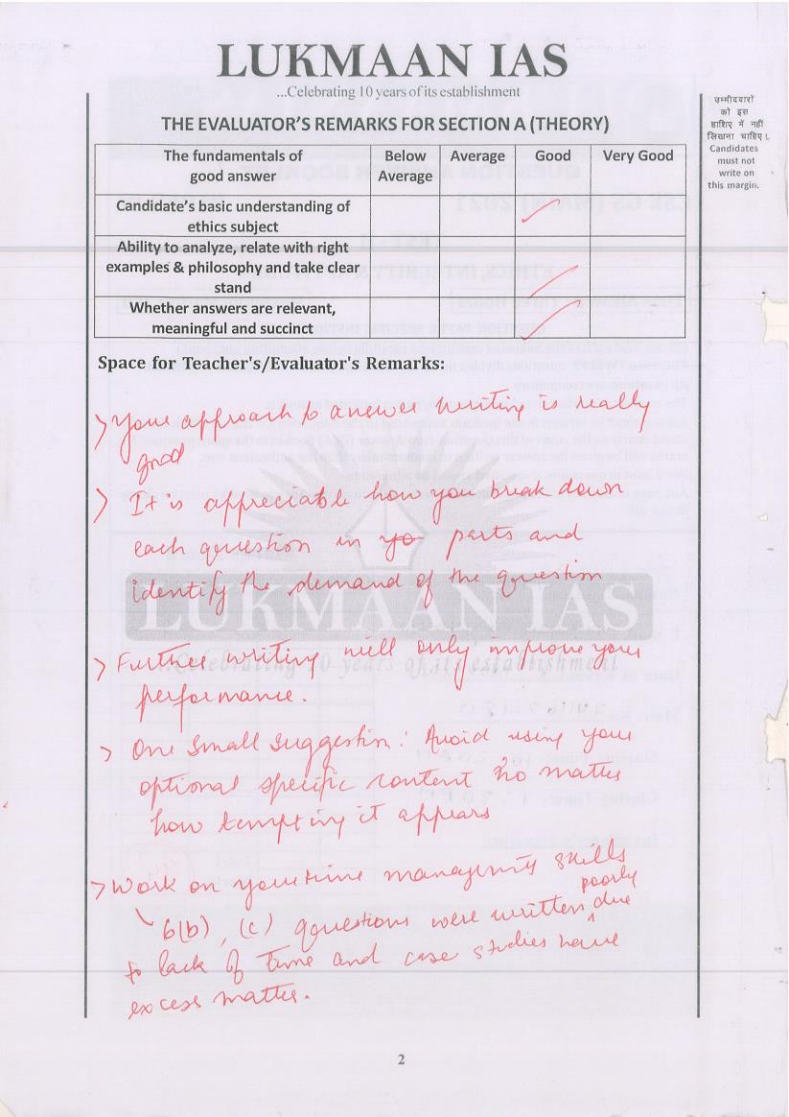 LUKMAAN IAS
...Celebrating 10 years of its establishment
उम्मीदवारों
को इस
हाशिए में नहीं
लिखना चाहिए।
Candidates
must not
write on
this margin.
THE EVALUATOR'S REMARKS FOR SECTION A (THEORY)
The fundamentals of good answer | Below Average | Average | Good | Very Good
Candidate's basic understanding of
ethics subject
Ability to analyze, relate with right
examples & philosophy and take clear
stand
Whether answers are relevant,
meaningful and succinct
Space for Teacher's/Evaluator's Remarks:
> Your approach to answer writing is really
good
> It is appreciable how you break down
each question in yo parts and
identify the demand of the question
LUKMAAN IAS
...Celebrating 10 years of its establishment
> Further writing will only improve your
performance.
> One small suggestion: Avoid using your
optional specific content no matter
how tempting it appears
> Work on your time management skills
6(b), (c) questions were written poorly due
to lack of time and case studies have
excess matter.
2